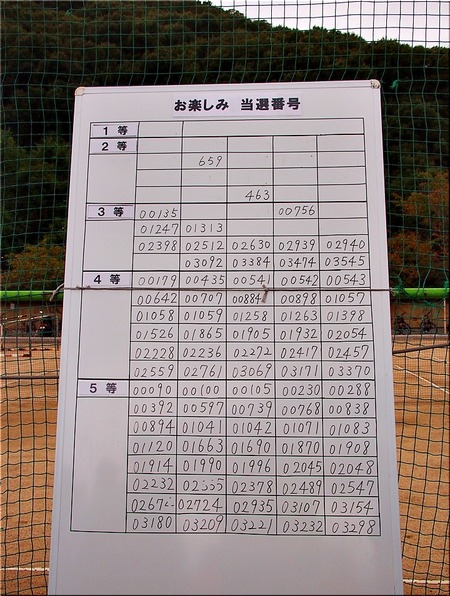 お楽しみ 当選番号
1等
2等
659
463
3等 00135 00756
01247 01313
02398 02512 02630 02939 02940
03092 03384 03474 03545
4等 00179 00435 00541 00542 00543
00642 00707 00884 00898 01057
01058 01059 01258 01263 01398
01526 01865 01905 01932 02054
02228 02236 02272 02417 02457
02559 02761 03069 03171 03370
5等 00090 00100 00105 00230 00288
00392 00597 00739 00768 00838
00894 01041 01042 01071 01083
01120 01663 01690 01870 01908
01914 01990 01996 02045 02048
02232 02378 02489 02547
02724 02935 03107 03154
03180 03209 03221 03232 03298